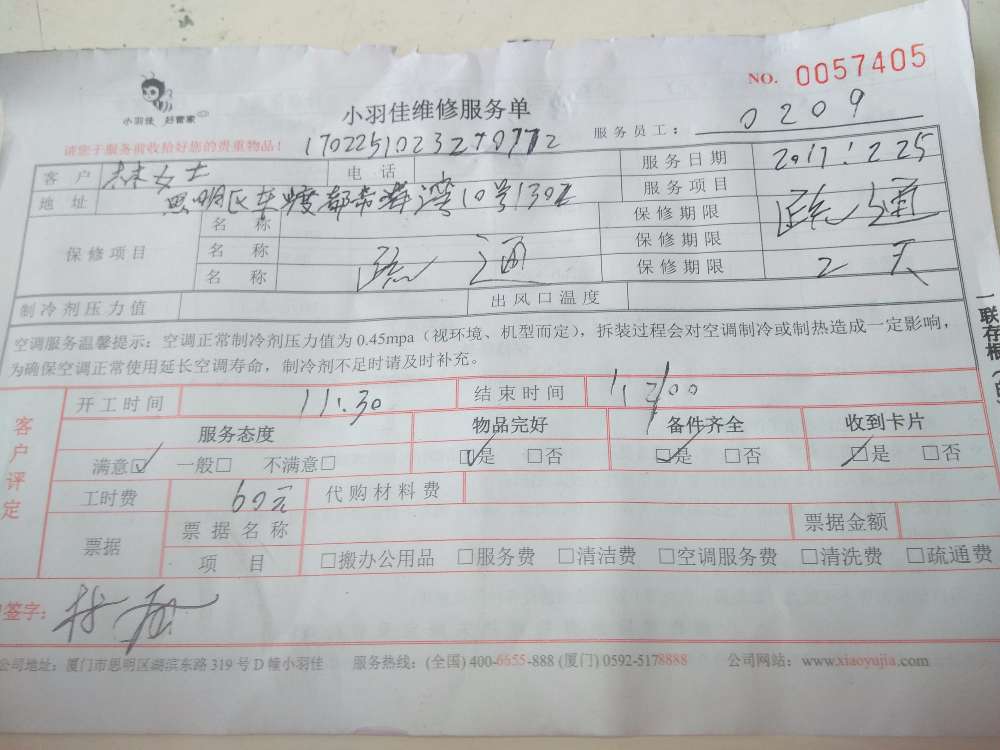 NO. 0057405
小羽佳 好管家
小羽佳维修服务单
服务员工： 0209
请您于服务前收拾好您的贵重物品！ 170225102328
客户 林女士 电话 服务日期 2017.2.25
地址 思明区东渡都市港湾10号1302 服务项目 疏通
保修项目 名称 保修期限
名称 疏通 保修期限
名称 保修期限 2天
制冷剂压力值 出风口温度
空调服务温馨提示：空调正常制冷剂压力值为0.45mpa（视环境、机型而定），拆装过程会对空调制冷或制热造成一定影响，
为确保空调正常使用延长空调寿命，制冷剂不足时请及时补充。
一联存根
客户评定
开工时间 11:30 结束时间
服务态度 物品完好 备件齐全 收到卡片
满意☑ 一般□ 不满意□ ☑是 □否 ☑是 □否 ☑是 □否
工时费 60元 代购材料费
票据 票据名称 票据金额
项目 □搬办公用品 □服务费 □清洁费 □空调服务费 □清洗费 □疏通费
签字：
公司地址：厦门市思明区湖滨东路319号D幢小羽佳 服务热线：(全国) 400-6655-888 (厦门) 0592-5178888 公司网站：www.xiaoyujia.com